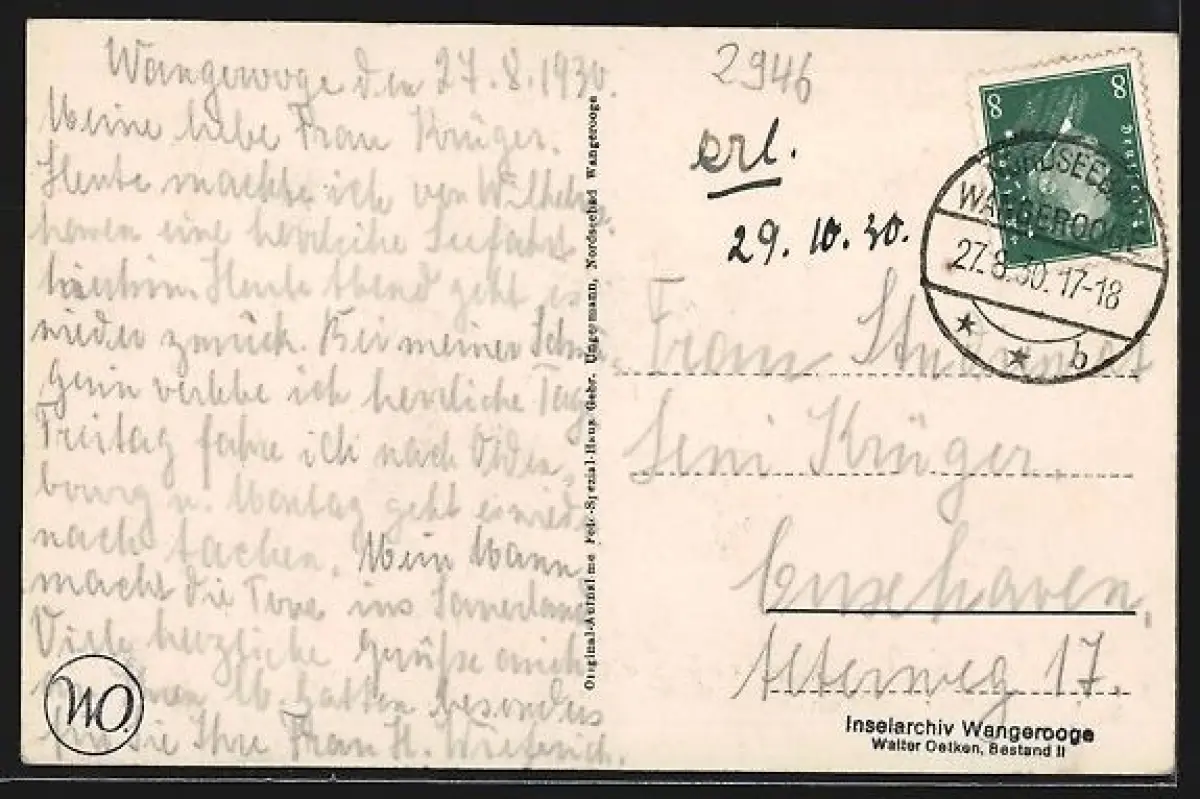 Wangerooge den 27.8.1930.
Meine liebe Frau Krüger.
Heute machte ich von Wilhelms-
haven eine herrliche Seefahrt
hierhin. Heute Abend geht es
wieder zurück. Bei meiner Schwä-
gerin verlebe ich herrliche Tage
Freitag fahre ich nach Olden-
bourg u. Montag geht es wieder
nach Aachen. Mein Mann
macht die Tour ins Sauerland
Viele herzliche Grüße auch
Gatten besonders
für Sie Ihre Frau H. Wieferich.
WO.
Original-Aufnahme Foto-Spezial-Haus Gebr. Ungermann, Nordseebad Wangerooge
2946
erl.
29.10.30.
8 8
NORDSEEBAD
WANGEROOGE
27.8.30.17-18
* * b
Frau
Leni Krüger.
Cuxhaven.
Alterweg 17.
Inselarchiv Wangerooge
Walter Oetken, Bestand II